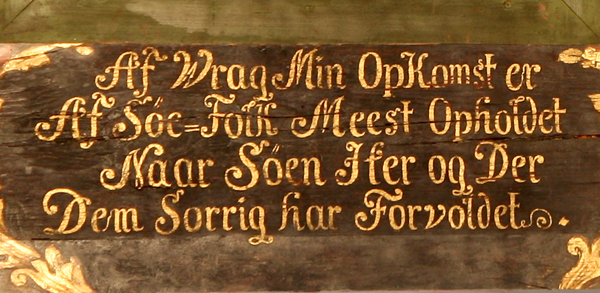 Af Wrag Min OpKomst er
Af Söe=Folk Meest Opholdet
Naar Söen Her og Der
Dem Sorrig har Forvoldet.